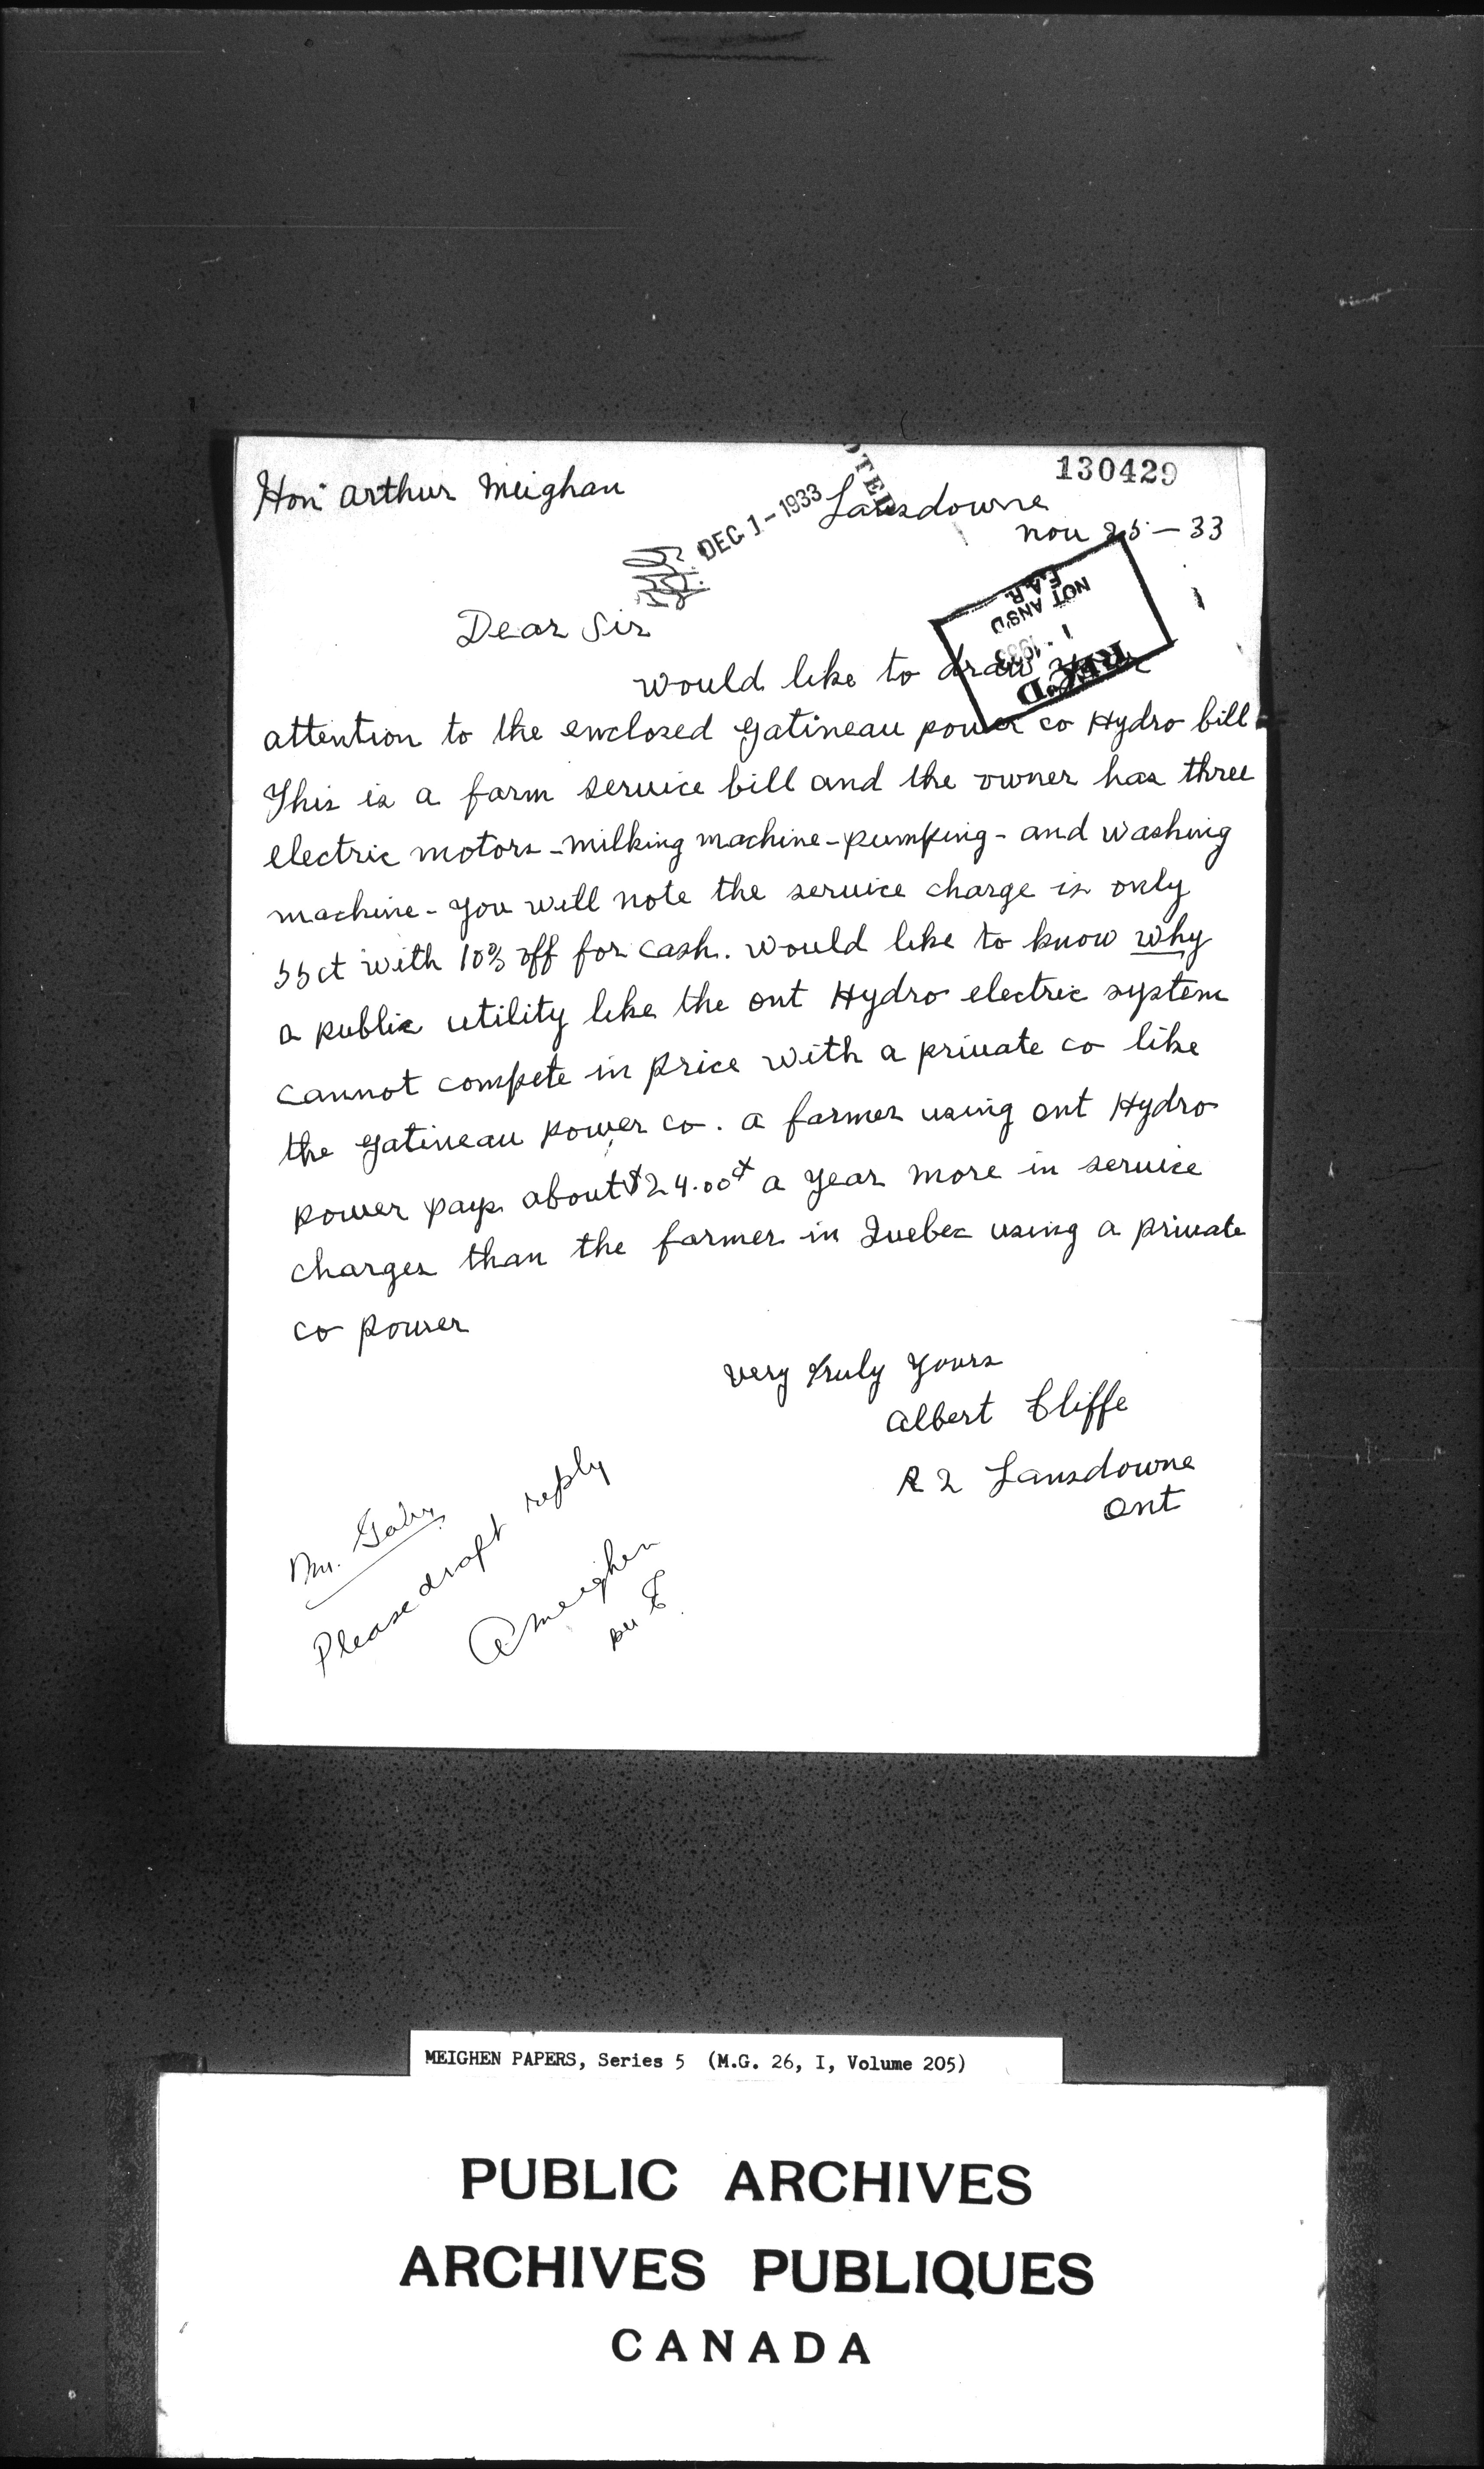 130429
Hon Arthur Meighan
DEC 1 - 1933
Lansdowne
Nov 25 - 33
REC'D
1 - 1933
NOT ANS'D
E.A.R.
Dear Sir
Would like to draw your
attention to the enclosed Gatineau power co Hydro bill
This is a farm service bill and the owner has three
electric motors - milking machine - pumping - and washing
machine - you will note the service charge is only
55ct with 10% off for cash. Would like to know why
a public utility like the ont Hydro electric system
cannot compete in price with a private co like
the Gatineau power co. a farmer using ont Hydro
power pays about $24.00ct a year more in service
charges than the farmer in Quebec using a private
co power
Very truly yours
Albert Cliffe
R 2 Lansdowne
Ont
Mr. Gaby
Please draft reply
A Meighen
per E.
MEIGHEN PAPERS, Series 5 (M.G. 26, I, Volume 205)
PUBLIC ARCHIVES
ARCHIVES PUBLIQUES
CANADA